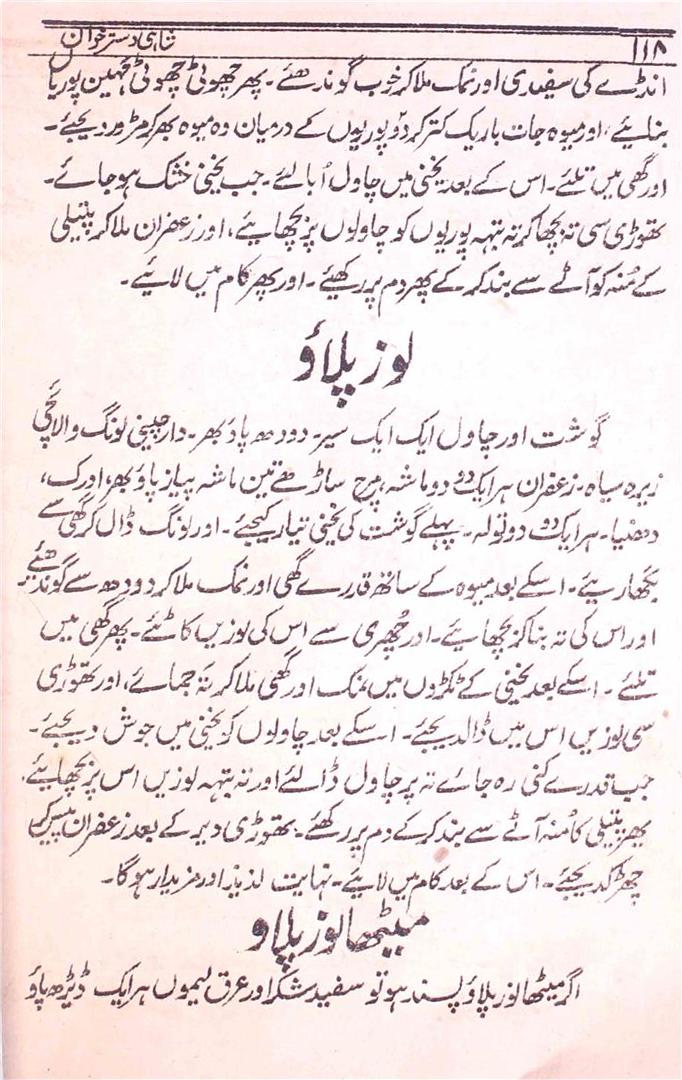 ۱۱۸ شاہی دسترخوان
انڈے کی سفیدی اور نمک ملا کر خوب گوندھئے۔ پھر چھوٹی چھوٹی مہین پوریاں
بنایئے، اور میوہ جات باریک کتر کر دو پوریوں کے درمیان وہ میوہ بھر کر مڑور دیجئے۔
اور گھی میں تلئے۔ اس کے بعد یخنی میں چاول اُبالئے۔ جب یخنی خشک ہو جائے۔
تھوڑی سی تہ بچھا کر تہ بتہہ پوریوں کو چاولوں پر بچھایئے، اور زعفران ملا کر پتیلی
کے مُنہ کو آٹے سے بند کر کے پھر دم پر رکھیئے۔ اور پھر کام میں لایئے۔
لوز پلاؤ
گوشت اور چاول ایک ایک سیر۔ دودھ پاؤ بھر۔ دارچینی لونگ و الائچی
زیرہ سیاہ۔ زعفران ہر ایک دو دو ماشہ، مرچ ساڑھے تین ماشہ پیاز پاؤ بھر، ادرک،
دھنیا۔ ہر ایک دو دو تولہ۔ پہلے گوشت کی یخنی تیار کیجئے۔ اور لونگ ڈال کر گھی سے
بگھاریئے۔ اسکے بعد میوہ کے ساتھ قدرے گھی اور نمک ملا کر دودھ سے گوندھئے
اور اس کی تہ بنا کر بچھایئے۔ اور چُھری سے اس کی لوزیں کاٹئے۔ پھر گھی میں
تلئے۔ اسکے بعد یخنی کے ٹکڑوں میں نمک اور گھی ملا کر تہ جمائے، اور تھوڑی
سی لوزیں اس میں ڈالدیجئے۔ اسکے بعد چاولوں کو یخنی میں جوش دیجئے۔
جب قدرے کنی رہ جائے تہ پر چاول ڈالئے اور تہ بتہہ لوزیں اس پر بچھایئے
پھر پتیلی کا مُنہ آٹے سے بند کر کے دم پر رکھئے۔ تھوڑی دیر کے بعد زعفران پیس کر
چھڑک دیجئے۔ اس کے بعد کام میں لایئے۔ نہایت لذیذ اور مزیدار ہوگا۔
میٹھا لوز پلاؤ
اگر میٹھا لوز پلاؤ پسند ہو تو سفید شکر اور عرق لیموں ہر ایک ڈیڑھ پاؤ